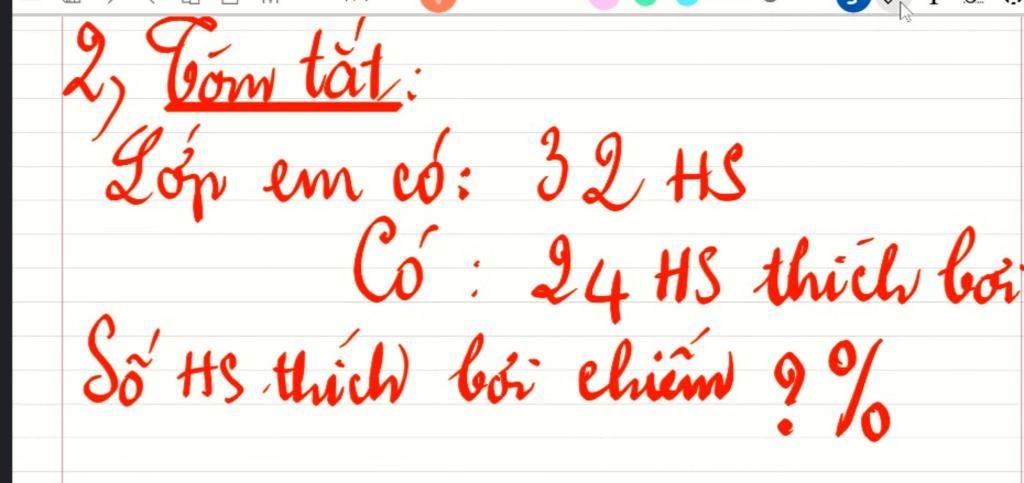 2, Tóm tắt:
Lớp em có: 32 HS
Có : 24 HS thích bơi
Số HS thích bơi chiếm ? %